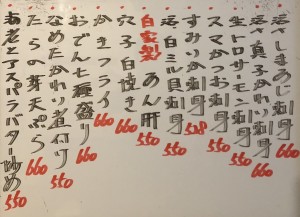 活〆しまあじ刺身 660
活真子かれい刺身 660
生トロサーモン刺身 550
スマかつお刺身 550
すみいか刺身 528
活白ミル貝刺身 550
自家製 あん肝 550
穴子白焼き 660
かきフライ 660
おでん七種盛り 660
なめたかれい煮付け 550
たらの芽天ぷら 660
海老とアスパラバター炒め 550